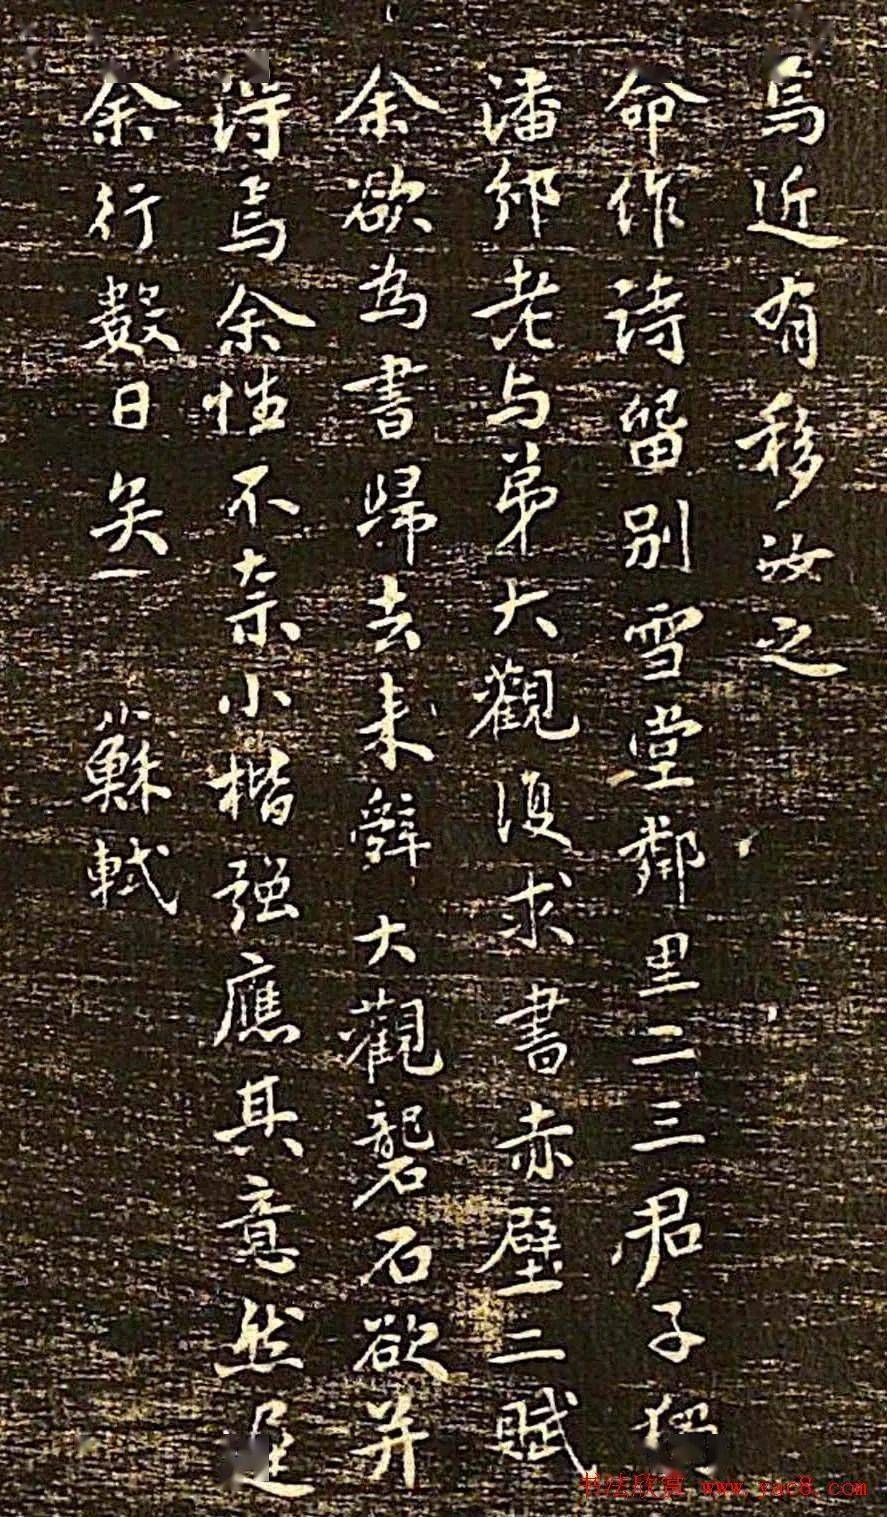 焉近有移汝之
命作詩留別雪堂鄰里二三君子獨
潘邠老与弟大觀復求書赤壁二賦
余欲為書歸去来辭大觀礱石欲并
得焉余性不奈小楷强應其意然遲
余行數日矣 蘇軾
书法欣赏 www.yac8.com